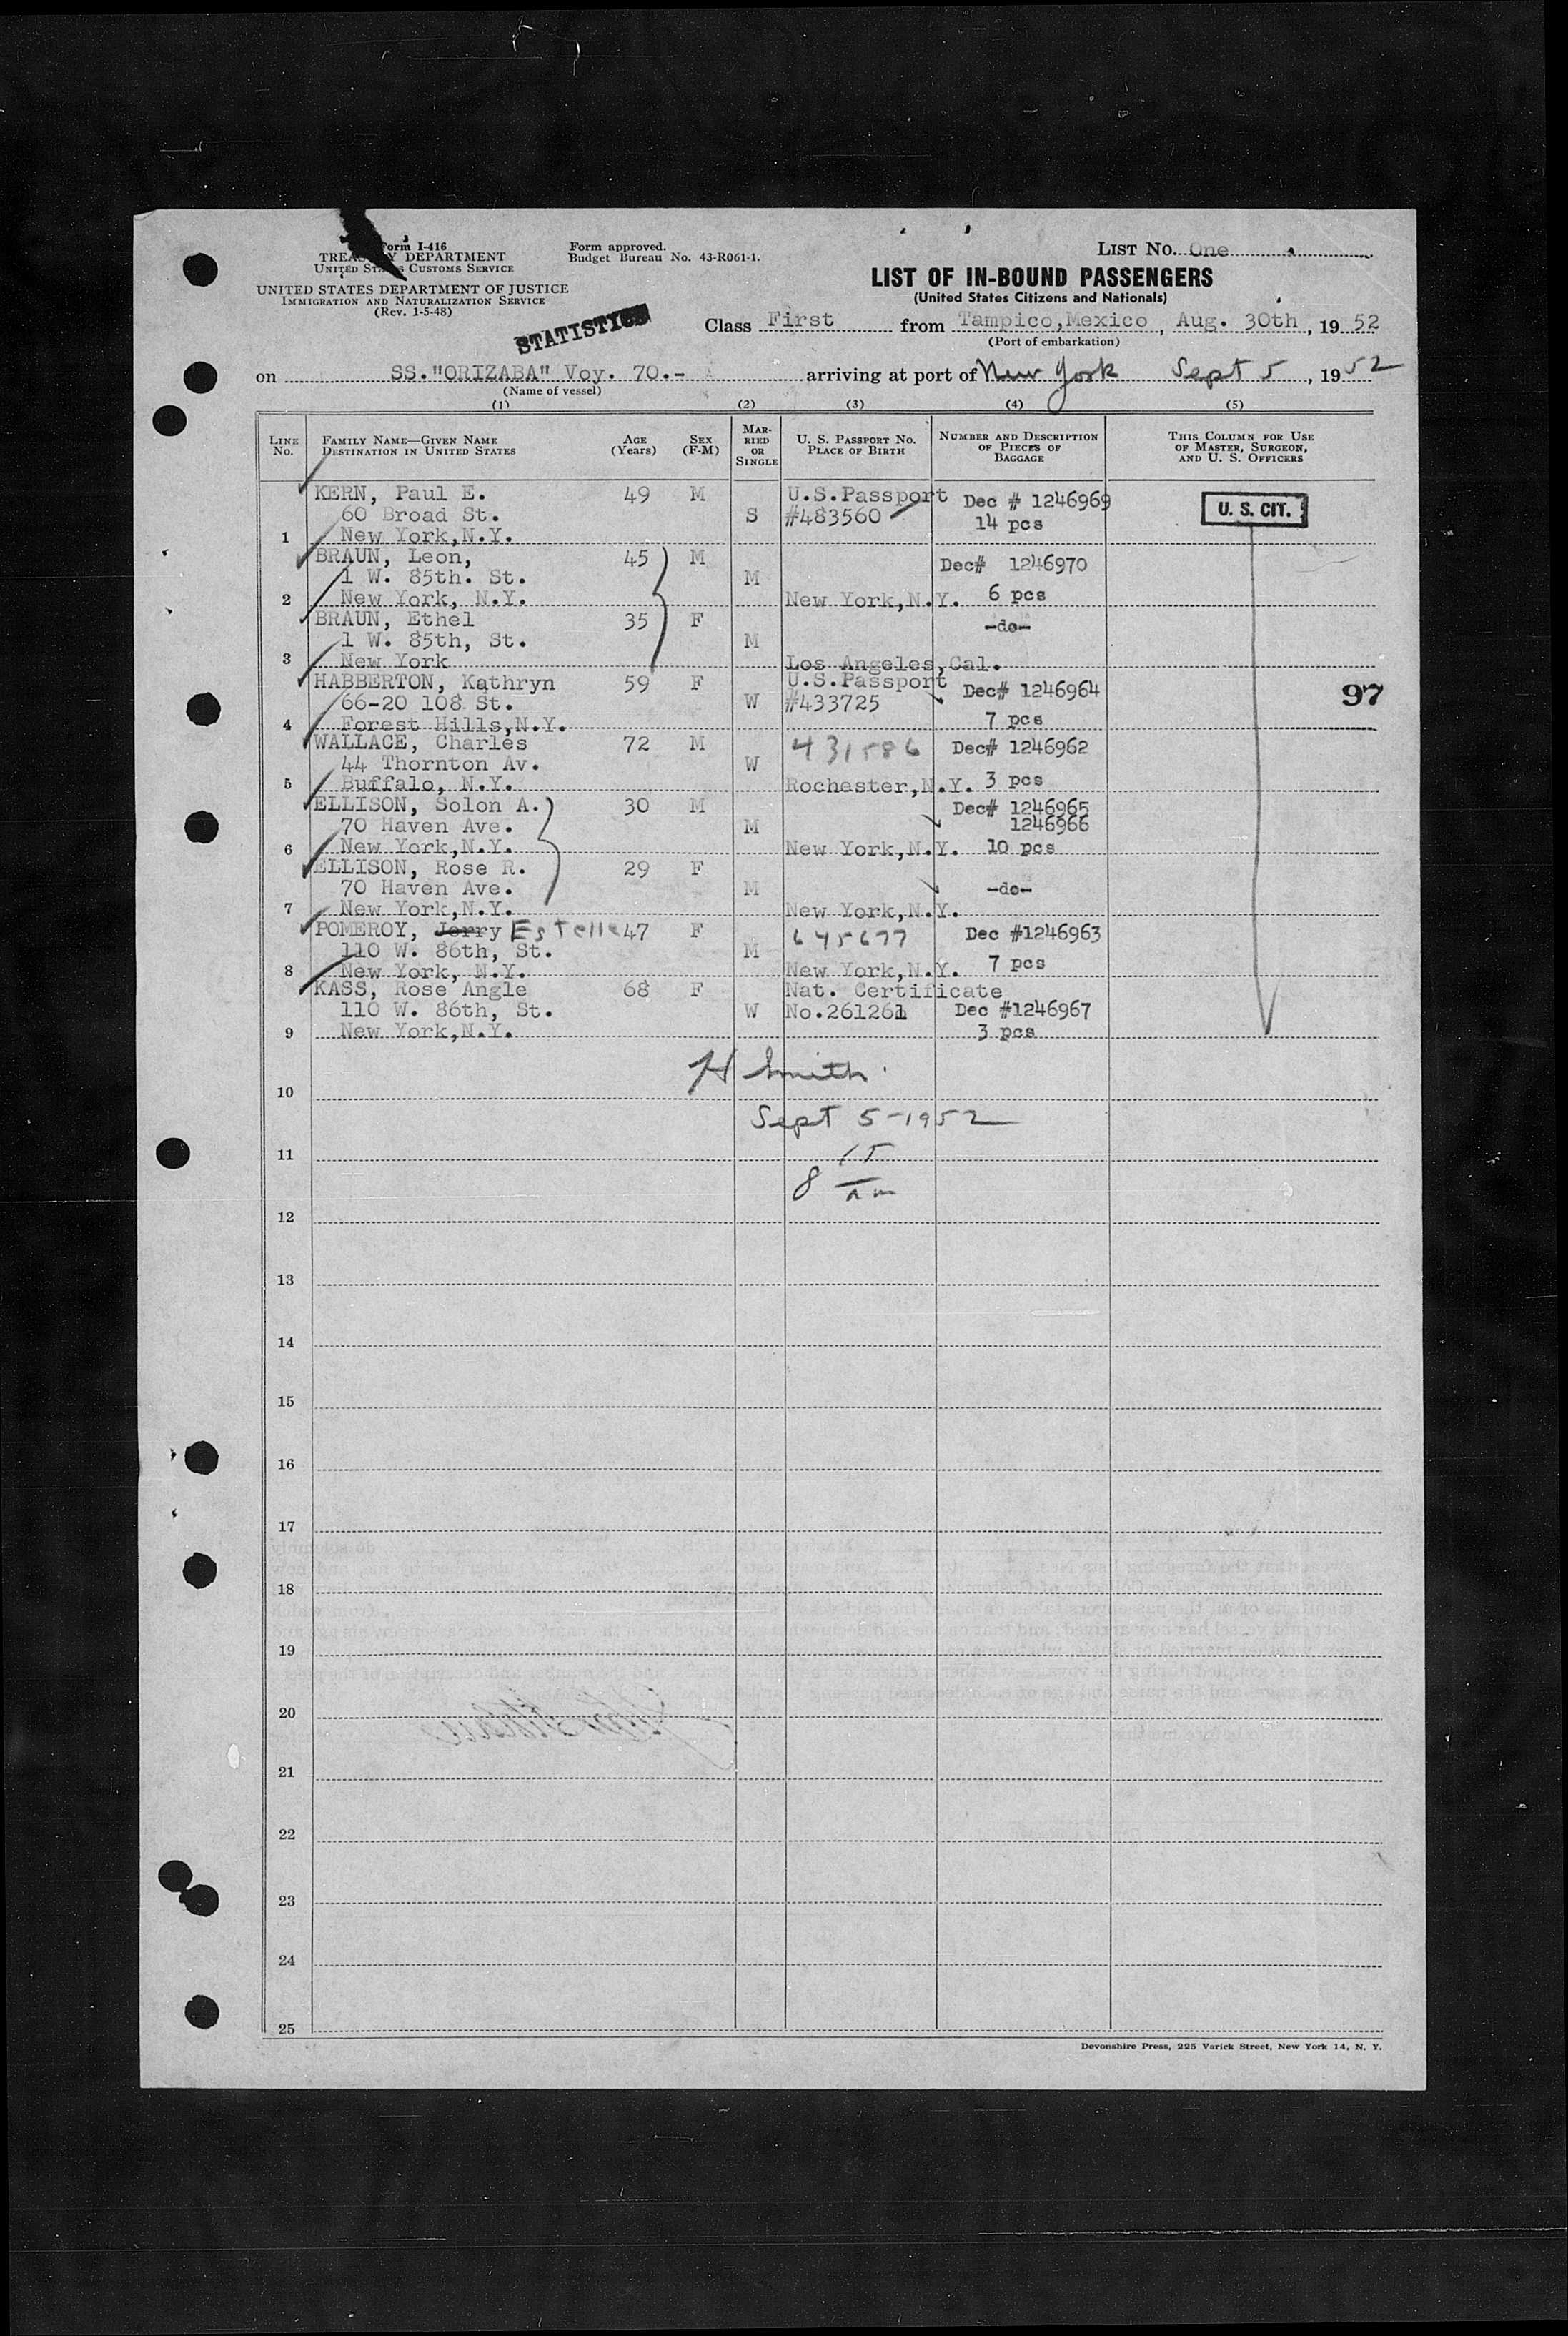 Form I-416
TREASURY DEPARTMENT
UNITED STATES CUSTOMS SERVICE
UNITED STATES DEPARTMENT OF JUSTICE
IMMIGRATION AND NATURALIZATION SERVICE
(Rev. 1-5-48)
Form approved.
Budget Bureau No. 43-R061-1.
STATISTICS
LIST NO. One
LIST OF IN-BOUND PASSENGERS
(United States Citizens and Nationals)
Class First from Tampico,Mexico, Aug. 30th, 1952
(Port of embarkation)
on SS."ORIZABA" Voy. 70.- arriving at port of New York Sept 5, 1952
(Name of vessel)
(1) (2) (3) (4) (5)
LINE NO. FAMILY NAME—GIVEN NAME DESTINATION IN UNITED STATES AGE (Years) SEX (F-M) MARRIED OR SINGLE U. S. PASSPORT NO. PLACE OF BIRTH NUMBER AND DESCRIPTION OF PIECES OF BAGGAGE THIS COLUMN FOR USE OF MASTER, SURGEON, AND U. S. OFFICERS
KERN, Paul E. 49 M U.S.Passport Dec # 1246969 U. S. CIT.
60 Broad St. S #483560 14 pcs
1 New York,N.Y.
BRAUN, Leon, 45 M Dec# 1246970
1 W. 85th. St. M
2 New York, N.Y. New York,N.Y. 6 pcs
BRAUN, Ethel 35 F -do-
1 W. 85th, St. M
3 New York Los Angeles,Cal.
HABBERTON, Kathryn 59 F U.S.Passport Dec# 1246964
66-20 108 St. W #433725
4 Forest Hills,N.Y. 7 pcs
97
WALLACE, Charles 72 M 431586 Dec# 1246962
44 Thornton Av. W
5 Buffalo, N.Y. Rochester,N.Y. 3 pcs
ELLISON, Solon A. 30 M Dec# 1246965
70 Haven Ave. M 1246966
6 New York,N.Y. New York,N.Y. 10 pcs
ELLISON, Rose R. 29 F
70 Haven Ave. M -do-
7 New York,N.Y. New York,N.Y.
POMEROY, Jerry Estelle 47 F 645677 Dec #1246963
110 W. 86th, St. M
8 New York, N.Y. New York,N.Y. 7 pcs
KASS, Rose Angle 68 F Nat. Certificate
110 W. 86th, St. W No.261261 Dec #1246967
9 New York,N.Y. 3 pcs
H Smith
10
Sept 5-1952
11
8 15 am
12
13
14
15
16
17
18
19
20
21
22
23
24
25
Devonshire Press, 225 Varick Street, New York 14, N. Y.